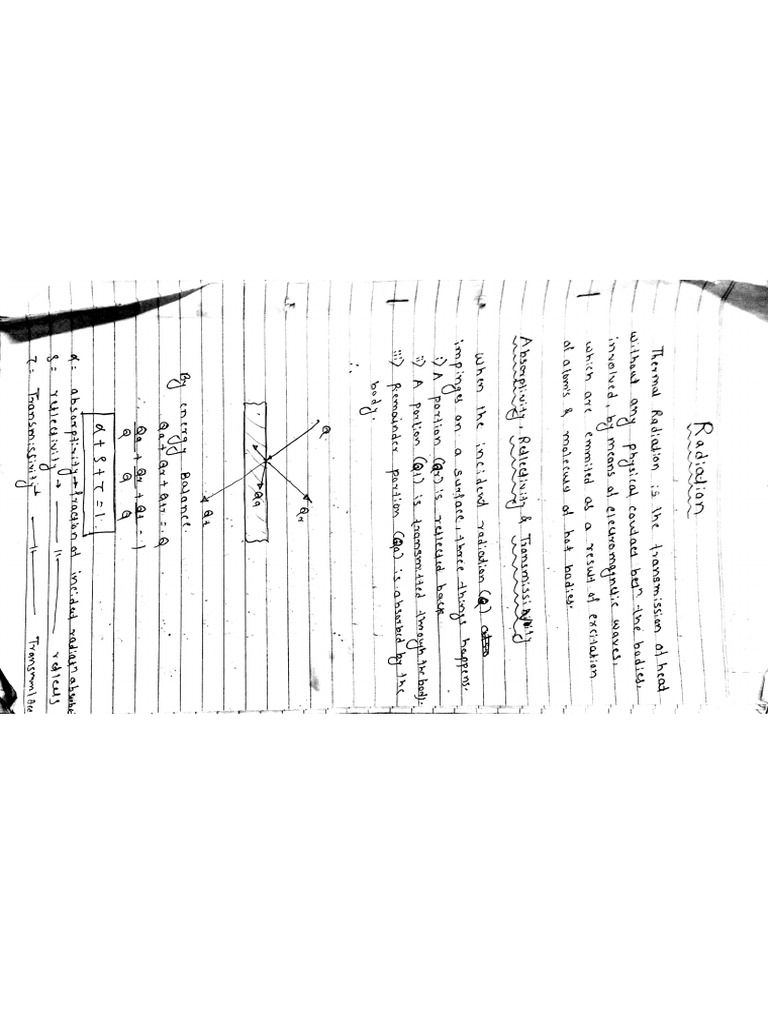 Radiation
Thermal Radiation is the transmission of heat
without any physical contact betn the bodies.
involved, by means of electromagnetic waves.
which are emmited as a result of excitation
of atoms & molecules of hot bodies.
Absorptivity, Reflectivity & Transmissivity
When the incident radiation (Q)
impinges on a surface, three things happens.
i) A portion (Qr) is reflected back
ii) A portion (Qt) is transmitted through the body.
iii) Remainder portion (Qa) is absorbed by the
body.
∴
Q
Qr
Qa
Qt
By energy Balance.
Qa + Qr + Qtr = Q
∴ Qa/Q + Qr/Q + Qt/Q = 1
α + ρ + τ = 1
α = absorptivity → fraction of incident radiatn absorbe
ρ = reflectivity → ——— 11 ——— reflects
τ = Transmissivity → ——— 11 ——— Transmitted